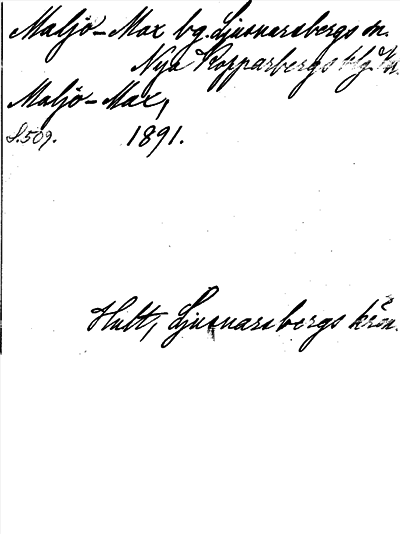 Maljö-Max bg. Ljusnarsbergs sn.
Nya Kopparbergs blg
Maljö-Max,
S. 509. 1891.
Hult, Ljusnarsbergs krön.